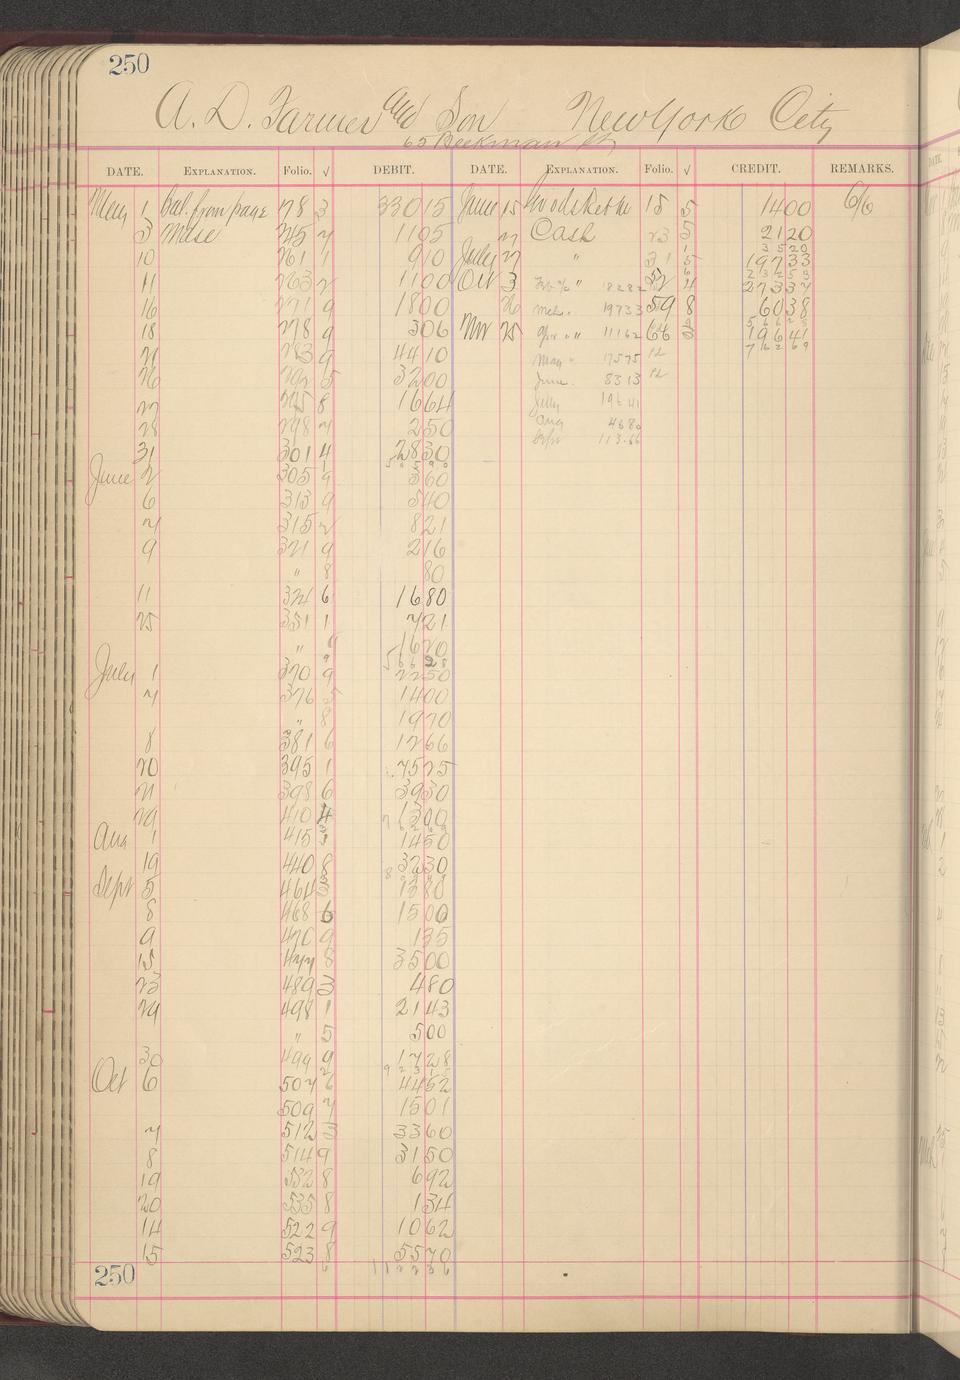 250
A. D. Farmer and Son New York City
65 Beekman St
DATE. EXPLANATION. Folio. √ DEBIT. DATE. EXPLANATION. Folio. √ CREDIT. REMARKS.
May 1 Bal. from page 78 3 330 15 June 15 15 5 14 00 6/6
3 Mdse 245 7 11 05 27 Cash 23 5 21 20
10 261 1 9 10 July 27 " 31 5 197 33
11 263 2 11 00 Oct 3 " 182 82 52 4 273 37
16 271 9 18 00 26 Mch. 197 33 59 8 60 38
18 278 9 3 06 Nov 25 Apr " " 111 62 66 196 41
21 283 9 44 10 May " 175 75
26 292 5 32 00 June. 83 13
27 295 8 16 64 July 196 41
28 298 7 2 50 Aug 46 80
31 301 4 28 30 Sept 113.66
June 2 305 9 3 60
6 313 9 5 40
7 315 2 8 21
9 321 9 2 16
" 8 80
11 324 6 16 80
25 351 1 7 21
" 16 20
566 28
July 1 370 9 22 50
7 376 5 14 00
" 8 19 70
8 381 6 12 66
20 395 1 75 25
21 398 6 39 30
29 410 4 13 00
Aug 1 415 3 14 50
19 440 8 32 30
Sept 5 464 3 13 80
8 468 6 15 00
9 470 9 1 35
15 477 8 35 00
23 489 3 4 80
29 498 1 21 43
" 5 5 00
30 499 9 17 28
Oct 6 507 6 44 52
509 7 15 01
7 512 3 33 60
8 514 9 31 50
19 532 8 6 92
20 535 8 1 34
14 522 9 10 62
15 523 8 55 70
250